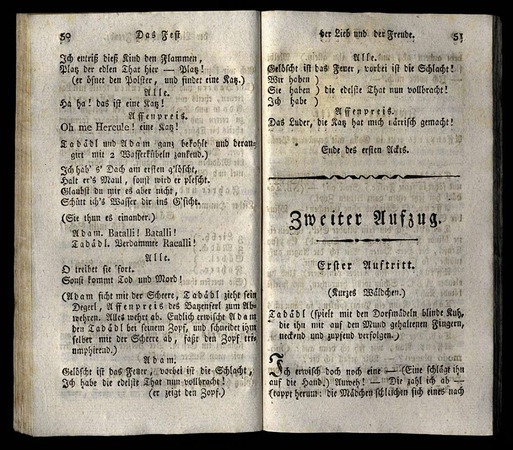 50
Das Fest
Ich entriß dieß Kind den Flammen,
Platz der edlen That hier — Platz!
(er öfnet den Polster, und findet eine Katz.)
Alle.
Ha ha! das ist eine Katz!
Affenpreis.
Oh me Hercule! eine Katz!
Tadädl und Adam ganz bekohlt und deran-
girt mit 2 Wasserkübeln zankend.)
Ich hab' s' Dach am ersten g'löscht,
Halt er's Maul, sonst wird er plescht.
Glaubst du mir es aber nicht,
Schütt ich's Wasser dir ins G'sicht.
(Sie thun es einander.)
Adam. Batalli! Batalli!
Tadädl. Verdammter Racalli!
Alle.
O treibet sie 'fort.
Sonst kommt Tod und Mord!
(Adam ficht mit der Scheere, Tadädl zieht sein
Degerl, Affenpreis des Batzenferl zum Ab-
wehren. Alles wehrt ab. Endlich erwischt Adam
den Tadädl bei seinem Zopf, und schneidet ihm
selber mit der Scheere ab, faßt den Zopf tri-
umphirend.)
Adam.
Gelöscht ist das Feuer, vorbei ist die Schlacht,
Ich habe die edelste That nun vollbracht!
(er zeigt den Zopf.)
der Lieb und der Freude.
51
Alle.
Gelöscht ist das Feuer, vorbei ist die Schlacht!
Wir haben )
Sie haben ) die edelste That nun vollbracht!
Ich habe )
Affenpreis.
Das Luder, die Katz hat mich närrisch gemacht!
Ende des ersten Akts.
Zweiter Aufzug.
Erster Auftritt.
(Kurzes Wäldchen.)
Tadädl (spielt mit den Dorfmädeln blinde Kuh,
die ihn mit auf den Mund gehaltenen Fingern,
neckend und zupfend verfolgen.)
Ich erwisch doch noch eine — (Eine schlägt ihn
auf die Hand.) Auweh! — Die zahl ich ab —
(tappt herum: die Mädchen schleichen sich eines nach